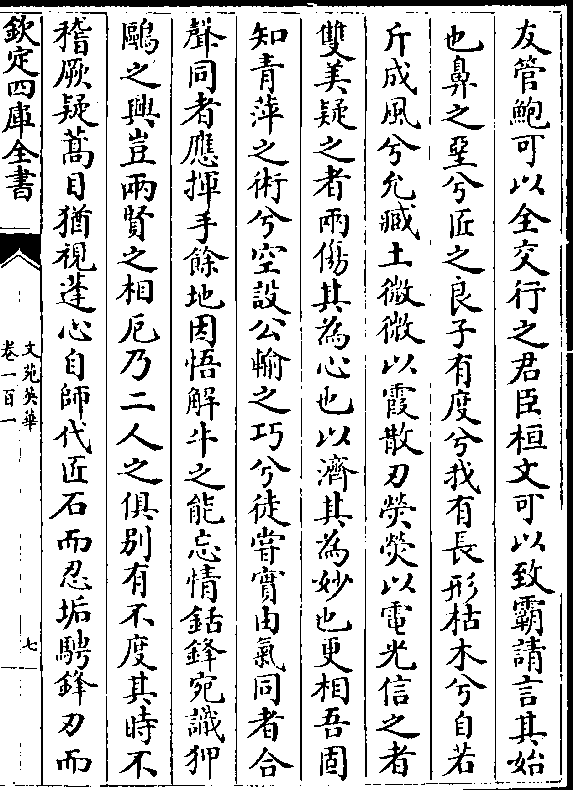 友管鮑可以全交行之君臣桓文可以致霸請言其始
也鼻之堊兮匠之良子有度兮我有長形枯木兮自若
斤成風兮允臧土微微以霞散刃熒熒以電光信之者
雙美疑之者兩傷其為心也以濟其為妙也更相吾固
知青萍之術兮空設公輸之巧兮徒甞實由氣同者合
聲同者應揮手餘地因悟解牛之能忘情銛鋒宛識狎
鷗之興豈兩賢之相厄乃二人之俱别有不度其時不
稽厥疑蒿目猶視蓬心自師代匠石而忍垢騁鋒刃而
欽定四庫全書
文苑英華
卷一百一
七